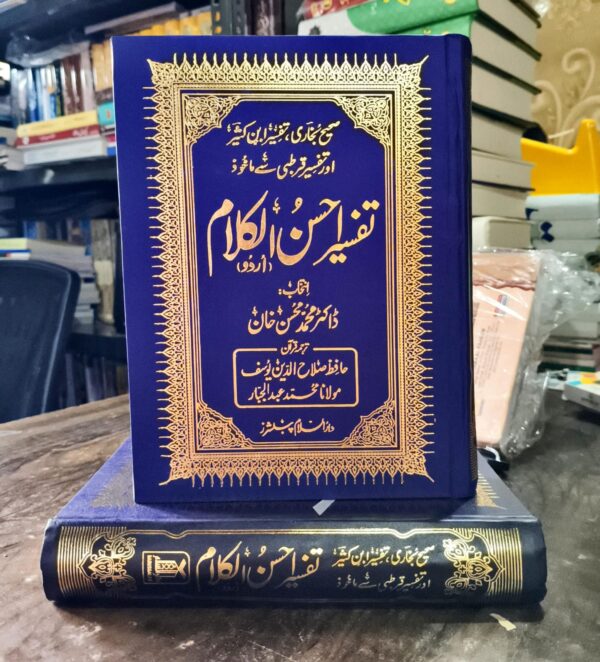 صحیح بخاری، تفسیر ابن کثیر
اور تفسیر قرطبی سے ماخوذ
تفسیر احسن الکلام
(اردو)
انتخاب:
ڈاکٹر محمد محسن خان
ترجمہ قرآن
حافظ صلاح الدین یوسف
مولانا محمد عبدالجبار
دارالسلام پبلشرز
تفسیر احسن الکلام
(اردو)
صحیح بخاری، تفسیر ابن کثیر
اور تفسیر قرطبی سے ماخوذ